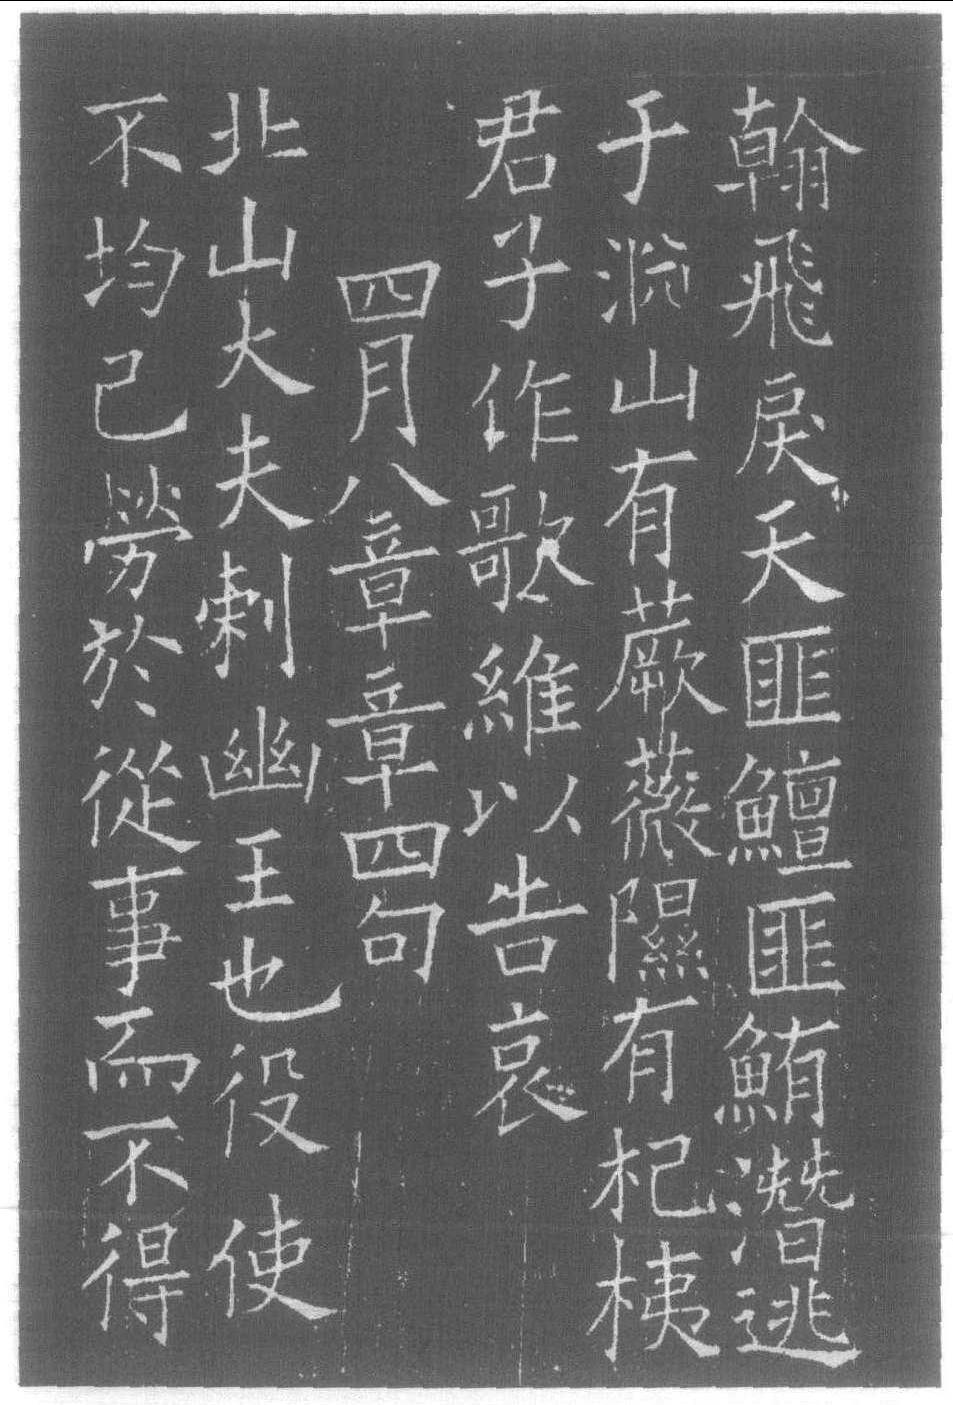 翰飛戾天匪鱣匪鮪潛逃
于淵山有蕨薇隰有杞桋
君子作歌維以告哀
四月八章章四句
北山大夫刺幽王也役使
不均己勞於從事而不得